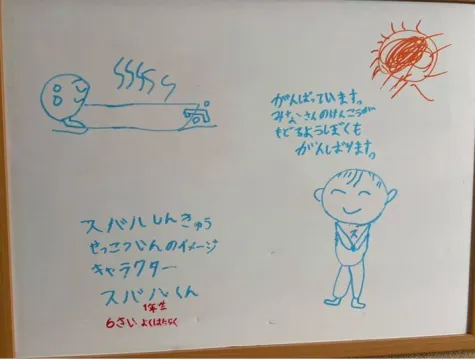 がんばっています。
みなさんのけんこうが
もどるようぼくも
がんばります。
ス
スバルしんきゅう
せっこついんのイメージ
キャラクター
スバルくん
1年生
6さい よくはたらく